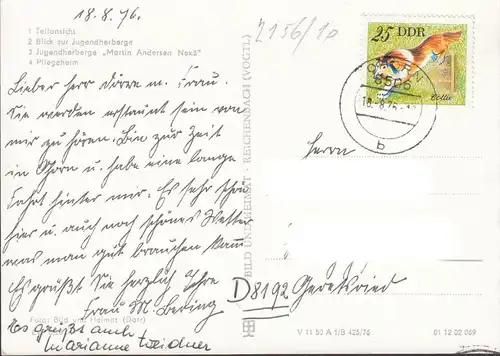 18.8.76.
1 Teilansicht
2 Blick zur Jugendherberge
3 Jugendherberge „Martin Andersen Nexö"
4 Pflegeheim
2156/10
25 DDR
Collie
18.-8.76
b
Lieber Herr Dörre m. Frau.
Sie werden erstaunt sein von
mir zu hören. Bin zur Zeit
in u. habe eine lange
Fahrt hinter mir. Es sehr schön
hier u. auch noch schönes Wetter
was man gut brauchen kann
Es grüßt Sie herzlich Ihre
Frau M.
Es grüßt auch
Marianne Weidner
Herrn
D8192 Geretsried
BILD UND HEIMAT · REICHENBACH (VOGTL)
Foto: Bild und Heimat (Darr)
V 11 50 A 1/B 425/76
01 12 02 069